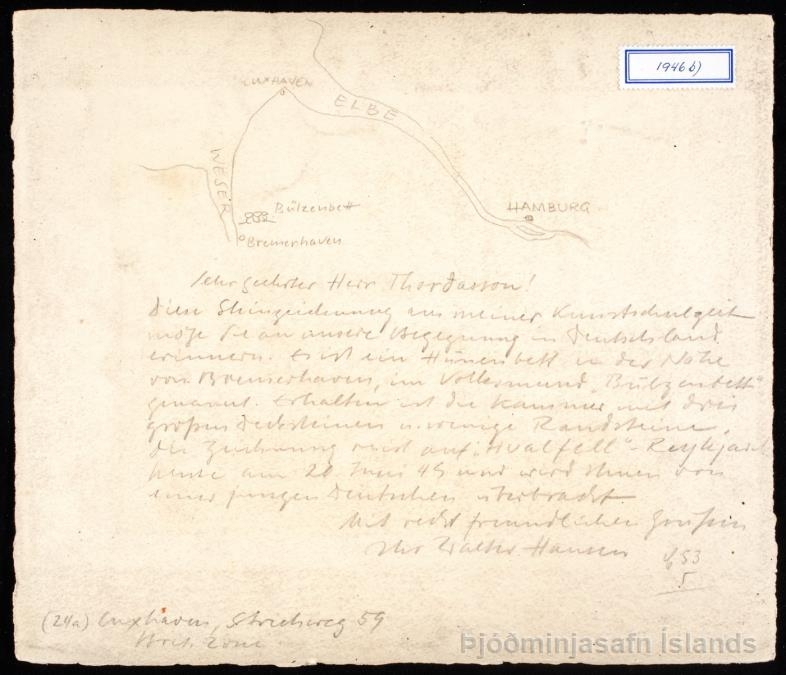 1946 b)
CUXHAVEN
ELBE
WESER
Bülzenbett
HAMBURG
Bremerhaven
Sehr geehrter Herr Thordarson!
Diese Skizzeichnung aus meiner Kunstschulzeit
möge Sie an unsere Begegnung in Deutschland
erinnern. Es ist ein Hünenbett in der Nähe
von Bremerhaven, im Volksmund „Bülzenbett"
genannt. Erhalten ist die Kammer mit drei
großen Decksteinen u. wenige Randsteine.
Die Zeichnung reist auf „Hvalfell" - Reykjavik
heute am 20. Juni 49 und wird Ihnen von
einer jungen Deutschen überbracht
Mit recht freundlichen Grüßen
Ihr Walter Hansen
53
5
(24a) Cuxhaven, Strichweg 59
Brit. Zone
Þjóðminjasafn Íslands